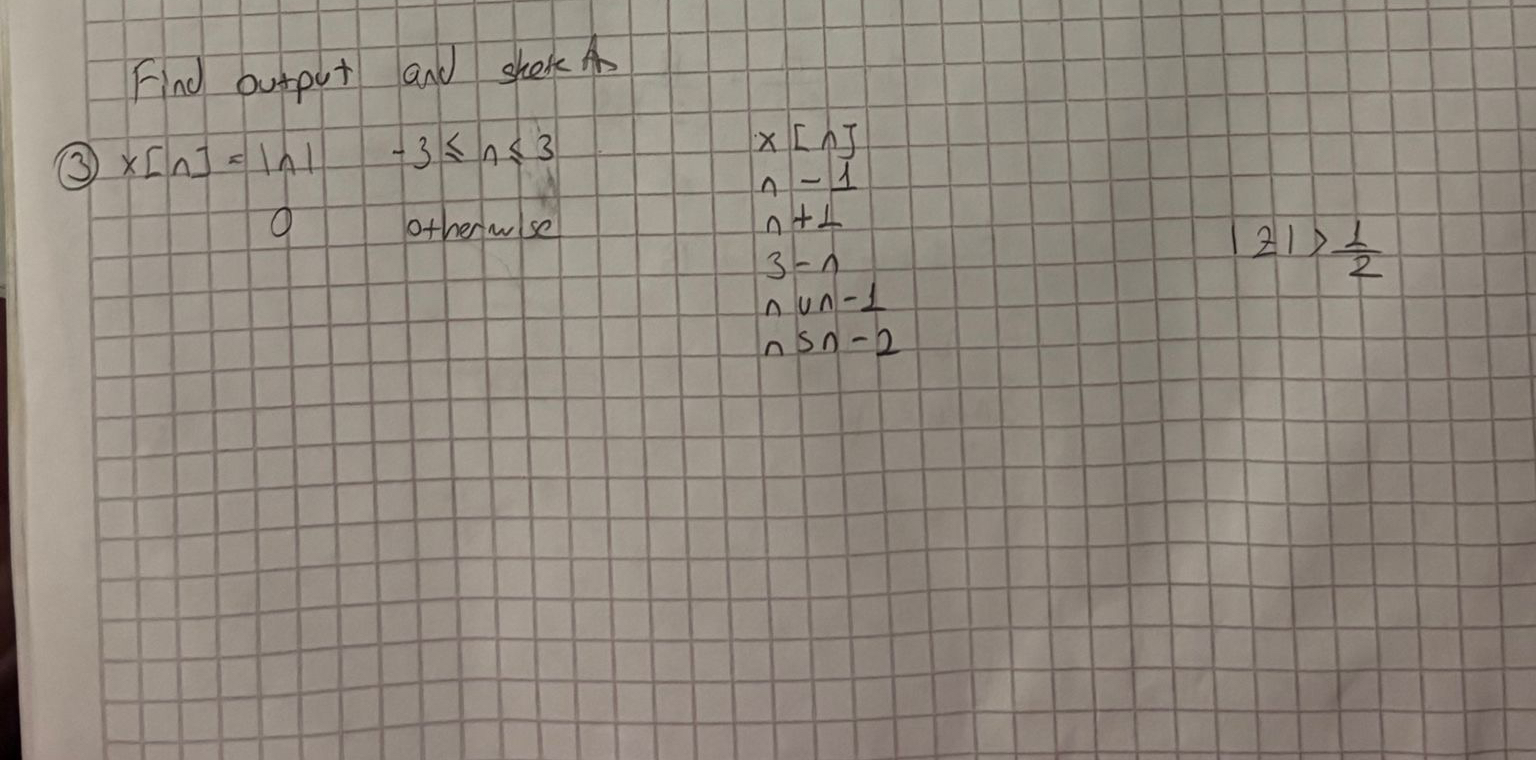 Find output and
③ x[n] = |n| -3 ≤ n ≤ 3
0 otherwise
x[n]
n - 1
n + 1
3 - n
n un - 1
n sn - 2
|z| > 1/2